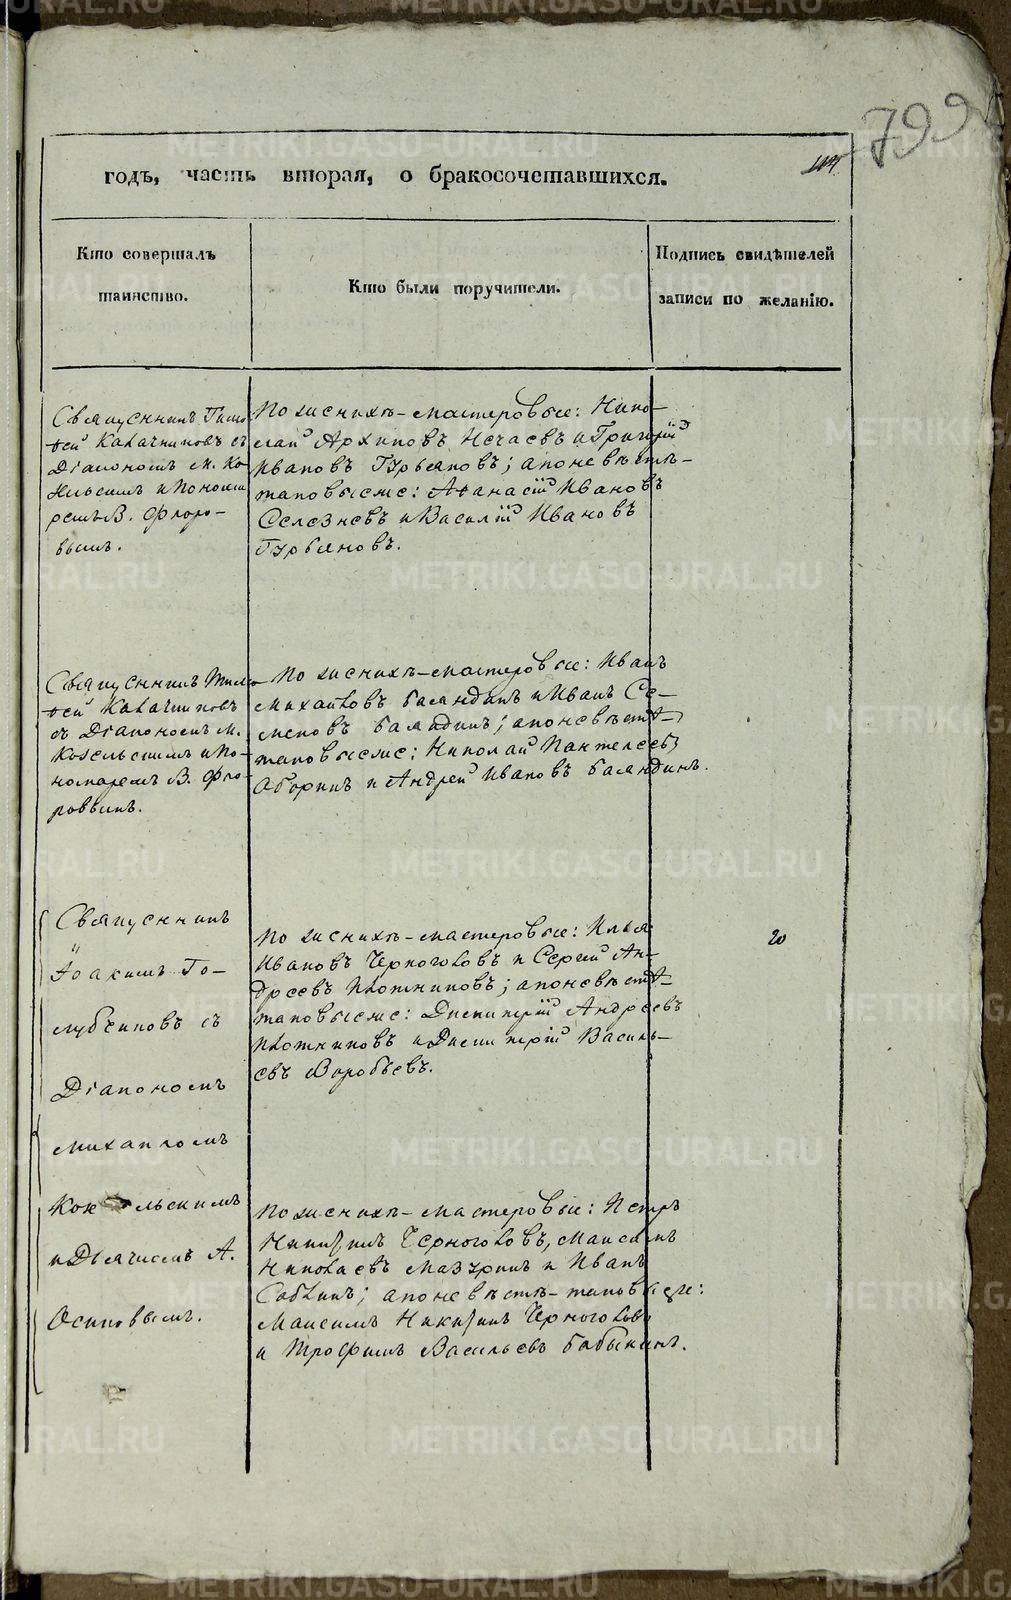 799
годъ, часть вторая, о бракосочетавшихся.
Кто совершалъ
таинство.
Кто были поручители.
Подпись свидѣтелей
записи по желанію.
Священникъ Тимо-
фей Калачниковъ съ
Діакономъ М. Ко-
зельскимъ и Понома
ремъ В. Флоро-
вымъ.
По женихѣ-мастеровые: Нико-
лай Архиповъ Нечаевъ и Григорій
Ивановъ Гурьяновъ; а по невѣстѣ-
таковыеже: Аѳанасій Ивановъ
Селезневъ и Василій Ивановъ
Гурьяновъ.
Священникъ Тимо-
фей Калачниковъ
съ Діакономъ М.
Козельскимъ и По-
номаремъ В. Фло-
ровымъ.
По женихѣ-мастеровые: Иванъ
Михайловъ Баландинъ и Иванъ Се-
меновъ Баландинъ; а по невѣстѣ-
таковыеже: Николай Пантелеевъ
Оборинъ и Андрей Ивановъ Баландинъ.
Священникъ
Іоакимъ Го-
лубчиковъ съ
Діакономъ
Михаиломъ
льскимъ
и Дьячкомъ А.
Осиповымъ.
По женихѣ-мастеровые: Илья
Ивановъ Черноголовъ и Сергій Ан-
дреевъ Плотниковъ; а по невѣстѣ-
таковыеже: Димитрій Андреевъ
Плотниковъ и Димитрій Василь-
евъ Воробьевъ.
20
По женихѣ-мастеровые: Петръ
Никитинъ Черноголовъ, Максимъ
Николаевъ Мазуринъ и Иванъ
а по невѣстѣ-таковыеже:
Максимъ Никитинъ Черноголовъ
и Трофимъ Васильевъ Бабыкинъ.
METRIKI.GASO-URAL.RU